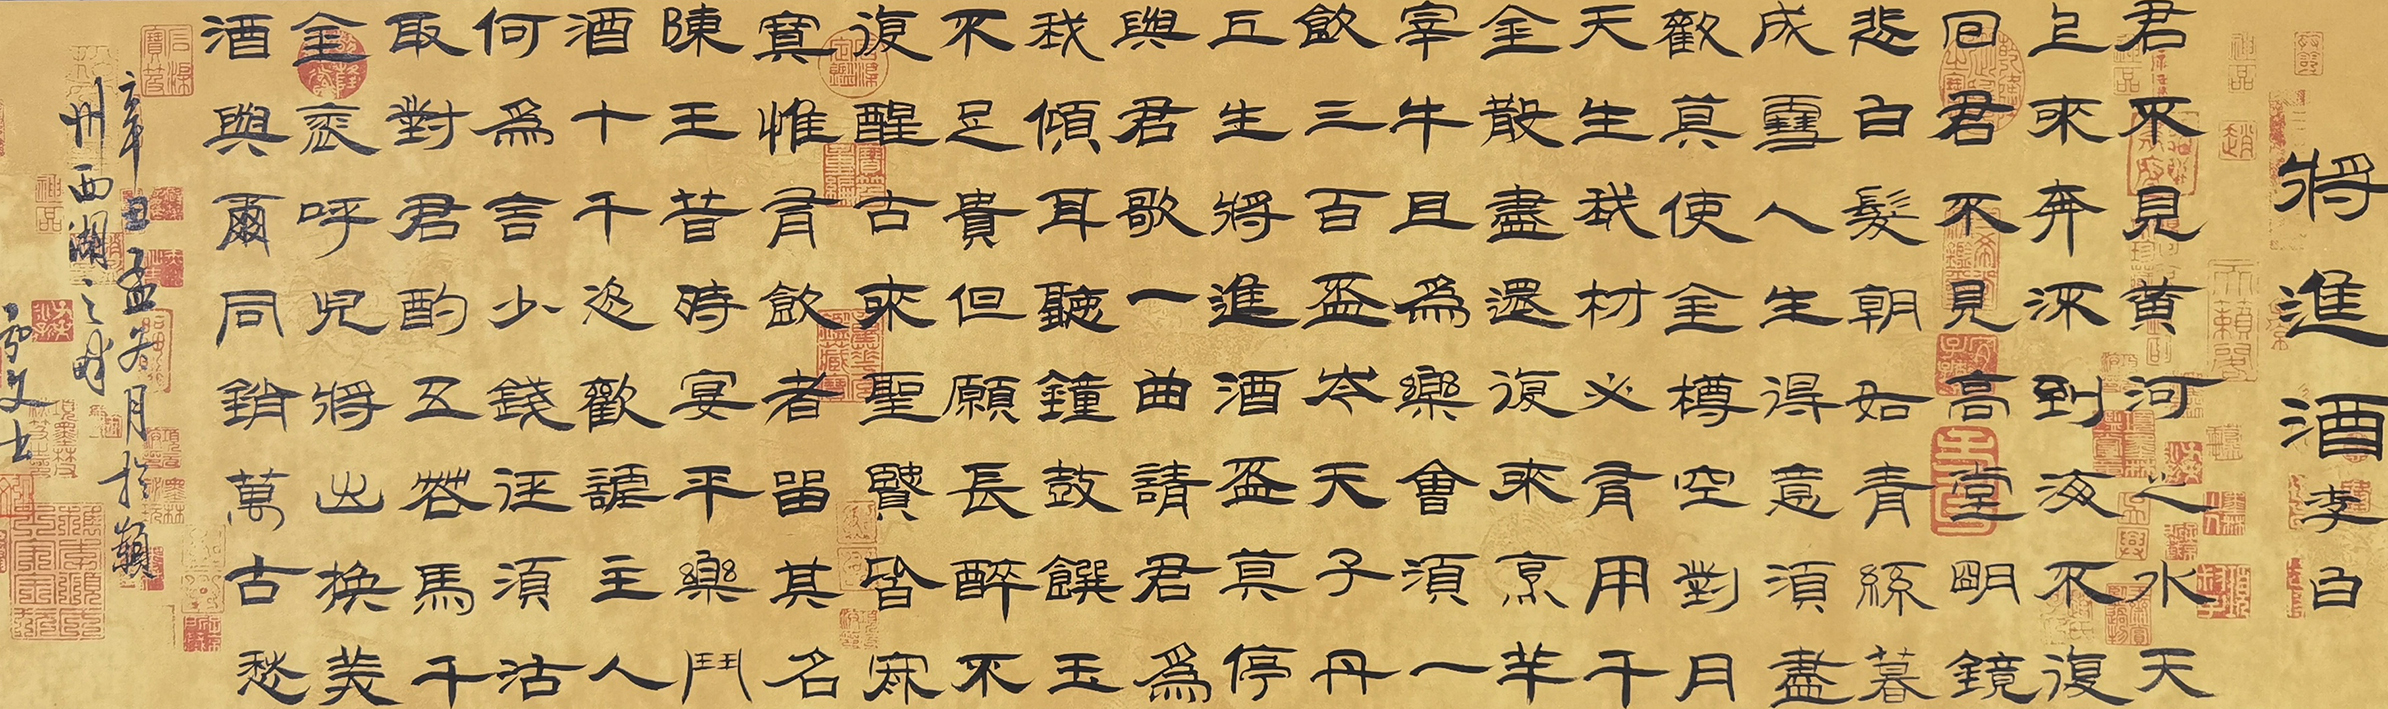 將進酒 李白
君不見黄河之水天
上來奔流到海不復
回君不見高堂明鏡
悲白髮朝如青絲暮
成雪人生得意須盡
歡莫使金樽空對月
天生我材必有用千
金散盡還復來烹羊
宰牛且爲樂會須一
飲三百盃岑夫子丹
丘生將進酒盃莫停
與君歌一曲請君爲
我傾耳聽鐘鼓饌玉
不足貴但願長醉不
復醒古來聖賢皆寂
寞惟有飲者留其名
陳王昔時宴平樂鬥
酒十千恣歡謔主人
何爲言少錢徑須沽
取對君酌五花馬千
金裘呼兒將出換美
酒與爾同銷萬古愁
辛丑孟冬月於潁
州西湖之畔